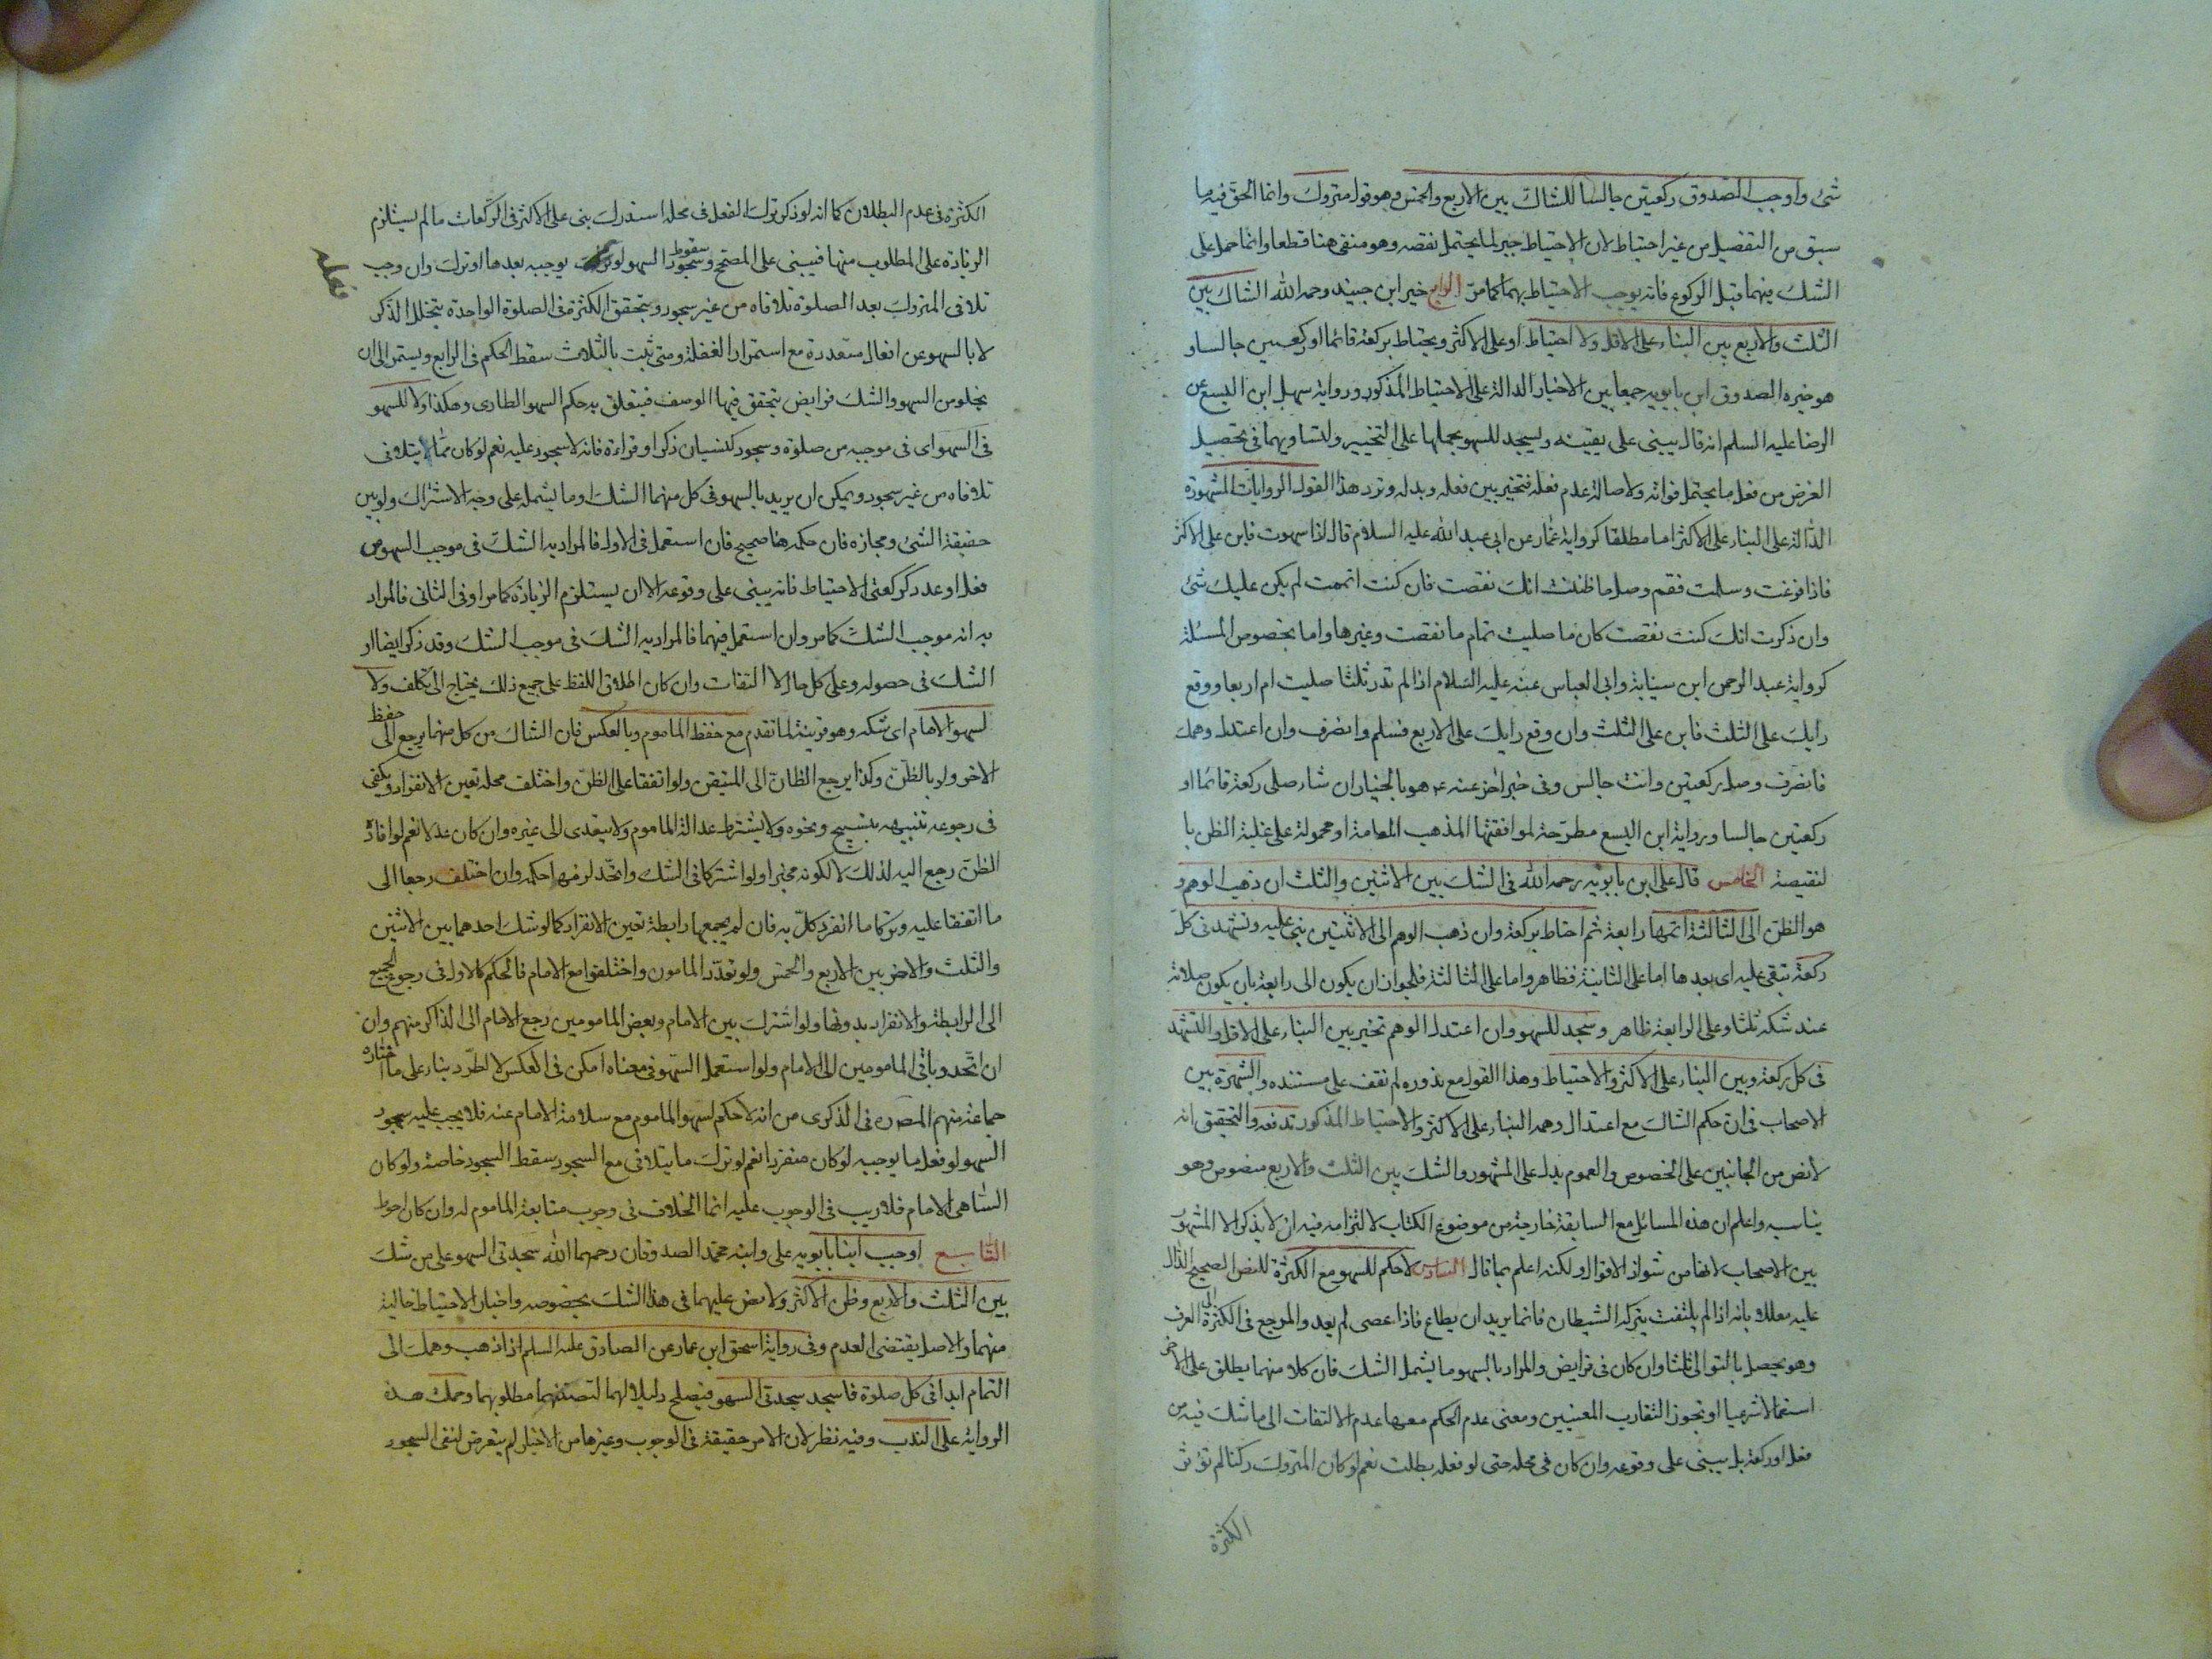 شئ واوجب الصدوق ركعتين جالسا للشاك بين الاربع والخمس وهو قول متروك وانما الحق فيه ما
سبق من التفصيل من غير احتياط لان الاحتياط جبر لما يحتمل نقصه وهو منفى هنا قطعا وانما حمل على
الشك فيهما قبل الركوع فانه يوجب الاحتياط بهما كما مرّ الرابع خير ابن جنيد رحمه الله الشاك بين
الثلث والاربع بين البناء على الاقل ولا احتياط او على الاكثر ويحتاط بركعة قائما او ركعتين جالسا و
هو خيره الصدوق ابن بابويه جمعا بين الاخبار الدالة على الاحتياط المذكور ورواية سهل ابن اليسع عن
الرضا عليه السلم انه قال يبنى على يقينه ويسجد للسهو بحملها على التخيير ولتساويهما فى تحصيل
الغرض من فعل ما يحتمل فواته ولاصالة عدم فعله فتخير بين فعله وبدله وترد هذا القول الروايات المشهورة
الدالة على البناء على الاكثر اما مطلقا كرواية عمار عن ابى عبد الله عليه السلام قال اذا سهوت فابن على الاكثر
فاذا فرغت وسلمت فقم وصل ما ظننت انك نقصت فان كنت اتممت لم يكن عليك شئ
وان ذكرت انك كنت نقصت كان ما صليت تمام ما نقصت وغيرها واما بخصوص المسئلة
كرواية عبد الرحمن ابن سيابة وابى العباس عنه عليه السلام اذا لم تدر ثلثا صليت ام اربعا ووقع
رايك على الثلث فابن على الثلث وان وقع رايك على الاربع فسلم وانصرف وان اعتدل وهمك
فانصرف وصل ركعتين وانت جالس وفى خبر اخر عنه ع هو بالخيار ان شاء صلى ركعة قائما او
ركعتين جالسا ورواية ابن اليسع مطرحة لموافقتها المذهب العامة او محمولة على غلبة الظن با
لنقيصة الخامس قال على ابن بابويه رحمه الله فى الشك بين الاثنين والثلث ان ذهب الوهم و
هو الظن الى الثالثة اتمها رابعة ثم احتاط بركعة وان ذهب الوهم الى الاثنتين بنى عليه وتشهد فى كلّ
ركعة تبقى عليه اى بعدها اما على الثانية فظاهر واما على الثالثة فلجواز ان يكون الى رابعة بان يكون صلاته
عند شكه ثلثا وعلى الرابعة ظاهر وسجد للسهو وان اعتدل الوهم تخير بين البناء على الاقل والتشهد
فى كل ركعة وبين البناء على الاكثر والاحتياط وهذا القول مع ندوره لم نقف على مستنده والشهرة بين
الاصحاب فى ان حكم الشاك مع اعتدال وهمه البناء على الاكثر والاحتياط المذكور تدفعه والتحقيق انه
لانص من الجانبين على الخصوص والعموم يدل على المشهور والشك بين الثلث والاربع منصوص وهو
يناسبه واعلم ان هذه المسائل مع السابقة خارجة من موضوع الكتاب لالتزامه فيه ان لا يذكر الا المشهور
بين الاصحاب لانها من شواذ الاقوال ولكنه اعلم بما قال السادس لا حكم للسهو مع الكثرة للنص الصحيح الدال
عليه معللا بانه اذا لم يلتفت يتركه الشيطان فانما يريد ان يطاع فاذا عصى لم يعد والمرجع فى الكثرة الى العرف
وهو يحصل بالتوالى ثلثا وان كان فى فرايض والمراد بالسهو ما يشمل الشك فان كلا منهما يطلق على الاخر
استعمالا شرعيا او تجوز التقارب المعنيين ومعنى عدم الحكم معها عدم الالتفات الى ما شك فيه من
فعل او ركعة بل يبنى على وقوعه وان كان فى محله حتى لو فعله بطلت نعم لو كان المتروك ركنا لم تؤثر
الكثرة
الكثرة فى عدم البطلان كما انه لو ذكر ترك الفعل فى محله استدرك بنى على الاكثر فى الركعات ما لم يستلزم
الزيادة على المطلوب منها فيبنى على المصحّح وسقوط سجود السهو لو فعل يوجبه بعدها او ترك وان وجب
فعله
تلافى المتروك بعد الصلوة تلافاه من غير سجود ويتحقق الكثرة فى الصلوة الواحدة بتخلل الذكر
لا بالسهو عن افعال متعددة مع استمرار الغفلة ومتى ثبت بالثلاث سقط الحكم فى الرابع ويستمر الى ان
يخلو من السهو والشك فرايض يتحقق فيها الوصف فيتعلق به حكم السهو الطارى وهكذا ولا للسهو
فى السهو اى فى موجبه من صلوة وسجود كنسيان ذكرا او قراءة فانه لا سجود عليه نعم لو كان ممّا يتلافى
تلافاه من غير سجود ويمكن ان يريد بالسهو فى كل منهما الشك او ما يشمله على وجه الاشتراك ولو بين
حقيقة الشئ ومجازه فان حكمه هنا صحيح فان استعمل فى الاول فالمراد به الشك فى موجب السهو من
فعل او عدد كركعتى الاحتياط فانه يبنى على وقوعه الا ان يستلزم الزيادة كما مر او فى الثانى فالمراد
به انه موجب الشك كما مر وان استعمل فيهما فالمراد به الشك فى موجب الشك وقد ذكر ايضا او
الشك فى حصوله وعلى كل حال لا التفات وان كان اطلاق اللفظ على جميع ذلك يحتاج الى تكلف ولا
لسهو الامام اى شكه وهو قرينة لما تقدم مع حفظ الماموم وبالعكس فان الشاك من كل منهما يرجع الى حفظ
الاخر ولو بالظن وكذا يرجع الظان الى المتيقن ولو اتفقا على الظن واختلف محله تعين الانفراد ويكفى
فى رجوعه تنبيهه بتسبيح ونحوه ولا يشترط عدالة الماموم ولا يتعدى الى غيره وان كان عدلا نعم لو افاد
الظن رجع اليه لذلك لا لكونه مخبرا ولو اشتركا فى الشك واتّحد لزمهما حكمه وان اختلف رجعا الى
ما اتفقا عليه وتركا ما انفرد كلّ به فان لم يجمعهما رابطة تعين الانفراد كما لو شك احدهما بين الاثنين
والثلث والاخر بين الاربع والخمس ولو تعدّد المامون واختلفوا مع الامام فالحكم كالاول فى رجوع الجميع
الى الرابطة والانفراد بدونها ولو اشترك بين الامام وبعض المامومين رجع الامام الى الذاكر منهم وان
ان اتّحد وباقى المامومين الى الامام ولو استعمل السّهو فى معناه امكن فى العكس لا الطّرد بناء على ما اختاره
جماعة منهم المصره فى الذكرى من انه لا حكم لسهو الماموم مع سلامة الامام عنه فلا يجب عليه سجود
السهو لو فعل ما يوجبه لو كان منفردا نعم لو ترك ما يتلافى مع السجود سقط السجود خاصة ولو كان
الساهى الامام فلاريب فى الوجوب عليه انما الخلاف فى وجوب متابعة الماموم له وان كان احوط
السّابع اوجب ابنا بابويه على وابنه محمّد الصدوقان رحمهما الله سجدتى السهو على من شك
بين الثلث والاربع وظن الاكثر ولا نص عليهما فى هذا الشك بخصوصه واخبار الاحتياط خالية
منهما والاصل يقتضى العدم وفى رواية اسحق ابن عمار عن الصادق عليه السلم اذا ذهب وهمك الى
التمام ابدا فى كل صلوة فاسجد سجدتى السهو فيصلح دليلا لهما لتضمنهما مطلوبهما وحملت هذه
الرواية على الندب وفيه نظر لان الامر حقيقة فى الوجوب وغيرها من الاخبار لم يتعرض لنفى السجود